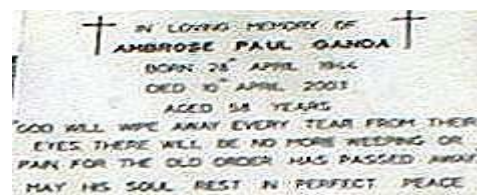 IN LOVING MEMORY OF
AMBROSE PAUL GANDA
BORN 28TH APRIL 1944
DIED 10TH APRIL 2003
AGED 58 YEARS
"GOD WILL WIPE AWAY EVERY TEAR FROM THEIR
EYES THERE WILL BE NO MORE WEEPING OR
PAIN FOR THE OLD ORDER HAS PASSED AWAY
MAY HIS SOUL REST IN PERFECT PEACE